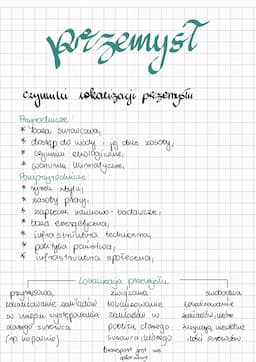 przemysł
czynniki lokalizacji przemysłu
Przyrodnicze:
* baza surowcowa,
* dostęp do wody i jej duże zasoby,
* czynniki ekologiczne,
* warunki klimatyczne,
Pozaprzyrodnicze:
* rynek zbytu,
* zasoby pracy,
* zaplecze naukowo-badawcze,
* baza energetyczna,
* infrastruktura techniczna,
* polityka państwa,
* infrastruktura społeczna,
Lokalizacja przemysłu
przymusowa związana swobodna
lokalizowanie zakładów lokalizowanie lokalizowanie
w miejscu występowania zakładów w zakładów, które
danego surowca pobliżu danego zużywają niewielkie
surowca, którego ilości surowców
transport jest nie